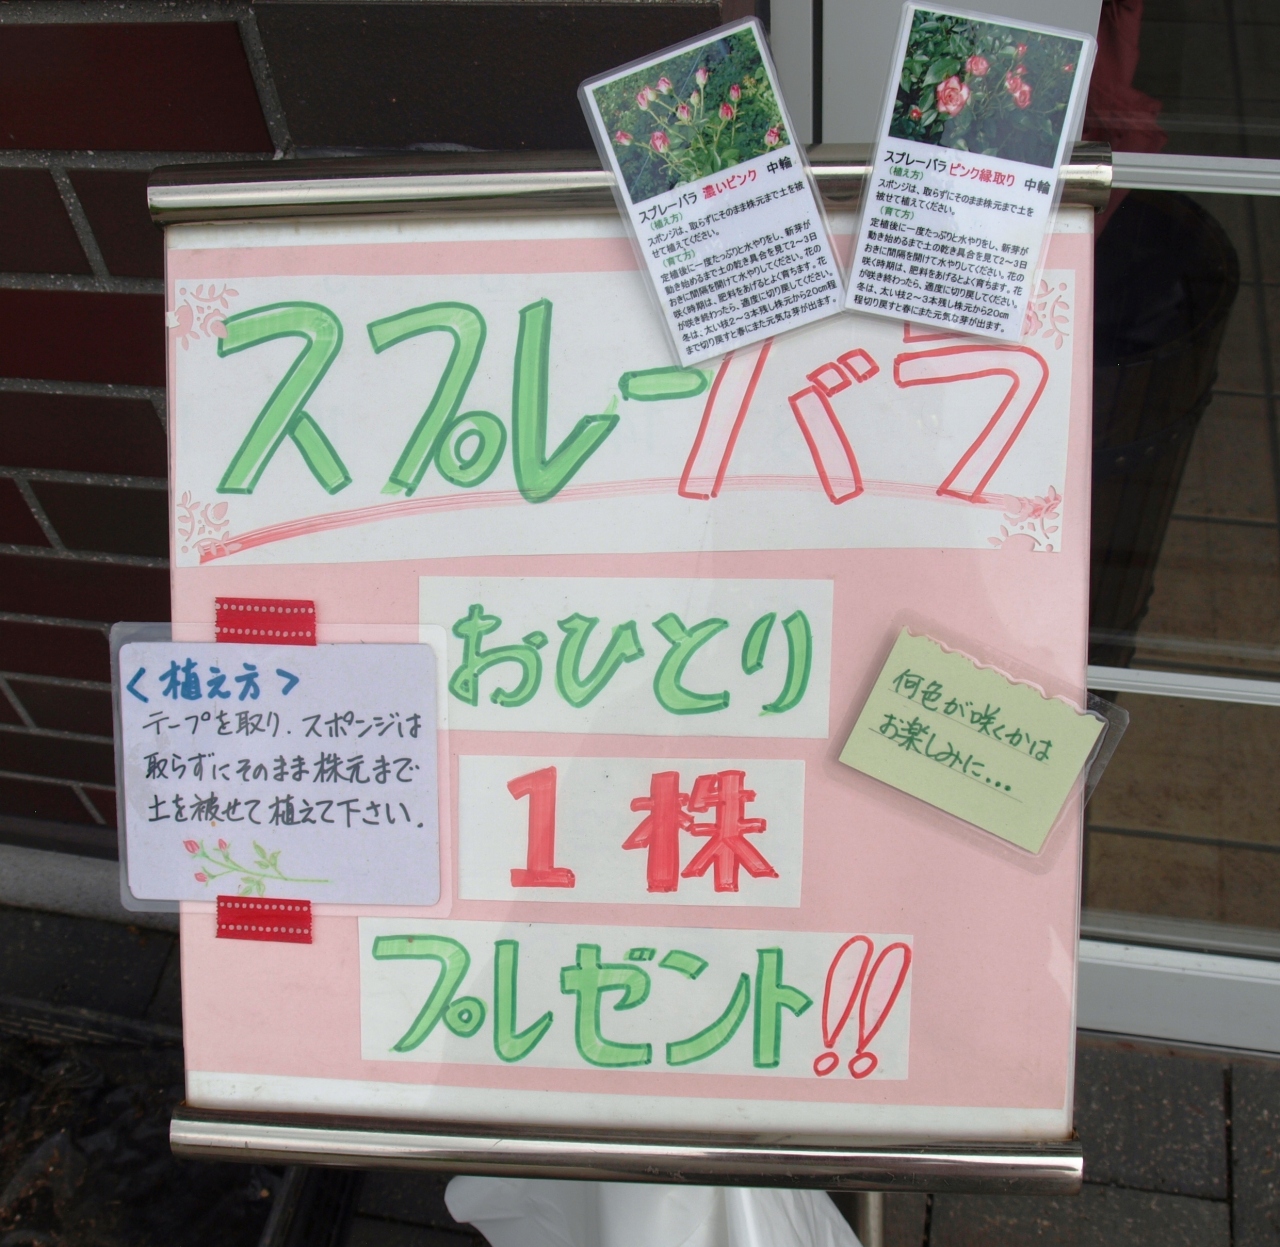 スプレーバラ 濃いピンク 中輪
(植え方)
スポンジは、取らずにそのまま株元まで土を被
せて植えてください。
(育て方)
定植後に一度たっぷりと水やりをし、新芽が
動き始めるまで土の乾き具合を見て2~3日
おきに間隔を開けて水やりしてください。花の
咲く時期は、肥料をあげるとよく育ちます。花
が咲き終わったら、適度に切り戻してください。
冬は、太い枝2~3本残し株元から20cm程
まで切り戻すと春にまた元気な芽が出ます。
スプレーバラ ピンク縁取り 中輪
(植え方)
スポンジは、取らずにそのまま株元まで土を
被せて植えてください。
(育て方)
定植後に一度たっぷりと水やりをし、新芽が
動き始めるまで土の乾き具合を見て2~3日
おきに間隔を開けて水やりしてください。花の
咲く時期は、肥料をあげるとよく育ちます。花
が咲き終わったら、適度に切り戻してください。
冬は、太い枝2~3本残し株元から20cm
程切り戻すと春にまた元気な芽が出ます。
スプレーバラ
おひとり
1株
プレゼント!!
<植え方>
テープを取り、スポンジは
取らずにそのまま株元まで
土を被せて植えて下さい.
何色が咲くかは
お楽しみに...